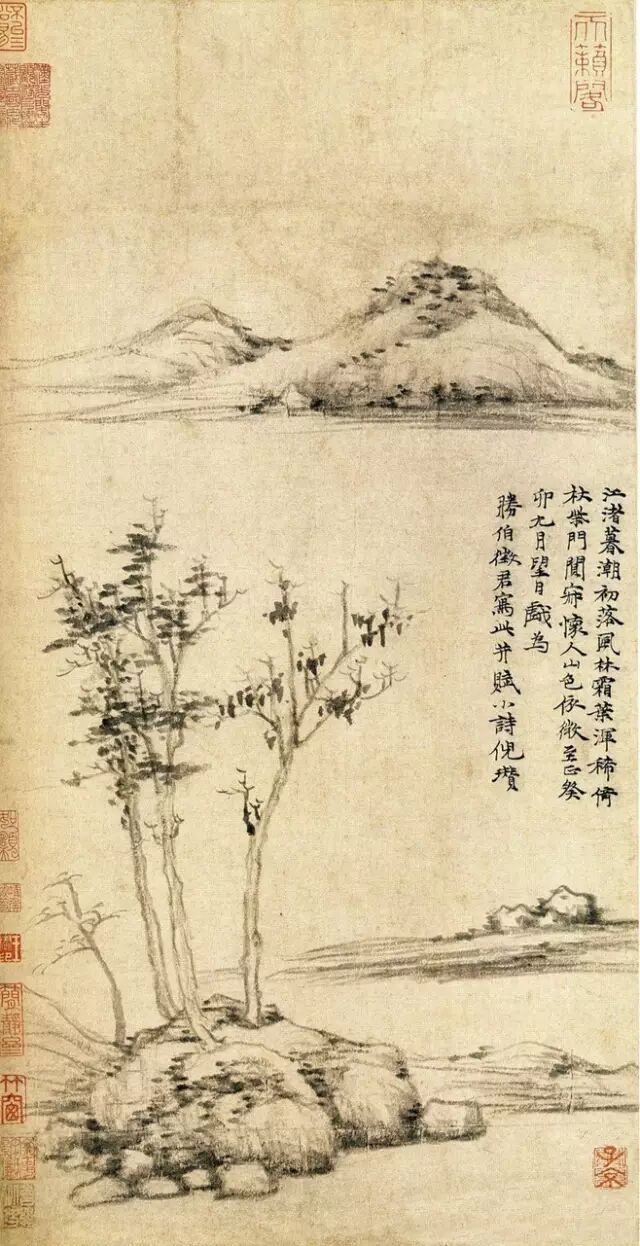 天籟閣
江渚暮潮初落風林霜葉渾稀倚
杖柴門闃寂懷人山色依微至正癸
卯九月望日戲為
勝伯徵君寫此并賦小詩倪瓚
竹窗
子京